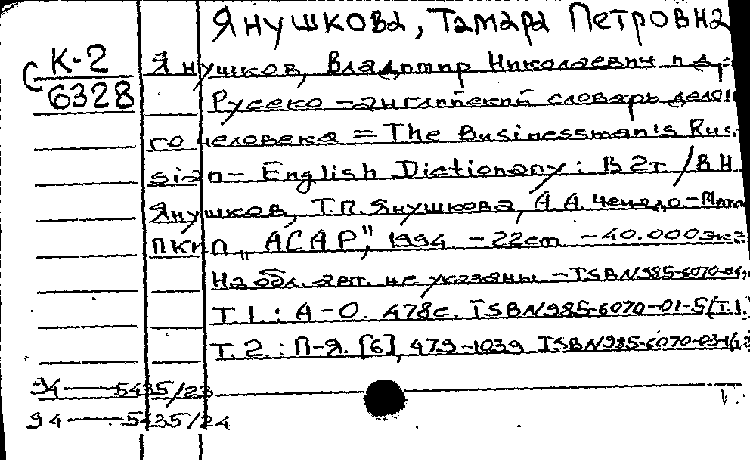 Янушкова, Тамара Петровна
С К-2
6328
Янушков, Владимир Николаевич и др.
Русско-английский словарь дело
го человека = The Businessman's Rus-
sian-English Dictionary: В 2т. / В.Н.
Янушков, Т.П. Янушкова, А.А.
ПКИП „АСАР", 1994 - 22cm - 40.000экз
На обл. авт. не указаны - ISBN 985-6070-
Т.1: А-О. 478с. ISBN 985-6070-01-5 (Т.1.
Т.2: П-Я. [6], 479-1039 ISBN 985-6070-
94—5435/23
94—5435/24